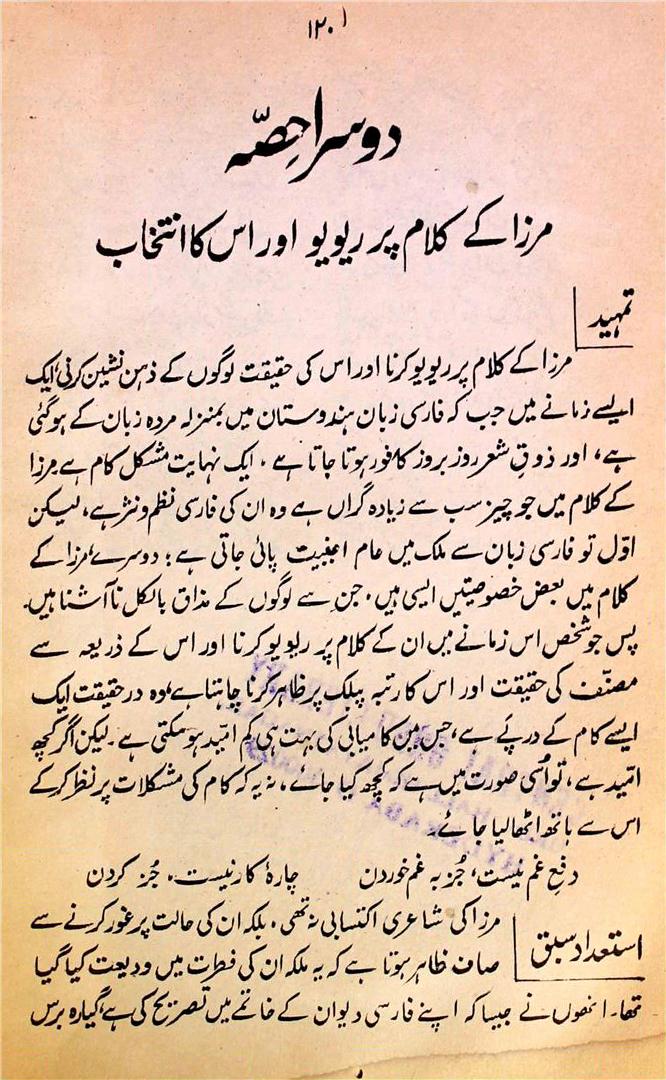 ۱۲۰
دوسرا حصّہ
مرزا کے کلام پر ریویو اور اس کا انتخاب
تمہید
مرزا کے کلام پر ریویو کرنا اور اس کی حقیقت لوگوں کے ذہن نشین کرنی، ایک
ایسے زمانے میں جب کہ فارسی زبان ہندوستان میں بمنزلہ مردہ زبان کے ہو گئی
ہے، اور ذوقِ شعر روز بروز کافور ہوتا جاتا ہے، ایک نہایت مشکل کام ہے مرزا
کے کلام میں جو چیز سب سے زیادہ گراں ہے وہ ان کی فارسی نظم و نثر ہے، لیکن
اوّل تو فارسی زبان سے ملک میں عام اجنبیت پائی جاتی ہے؛ دوسرے، مرزا کے
کلام میں بعض خصوصیتیں ایسی ہیں، جن سے لوگوں کے مذاق بالکل ناآشنا ہیں۔
پس جو شخص اس زمانے میں ان کے کلام پر ریویو کرنا اور اس کے ذریعہ سے
مصنّف کی حقیقت اور اس کا رتبہ پبلک پر ظاہر کرنا چاہتا ہے، وہ درحقیقت ایک
ایسے کام کے درپے ہے، جس میں کامیابی کی بہت ہی کم امّید ہو سکتی ہے۔ لیکن اگر کچھ
امّید ہے، تو اُسی صورت میں ہے کہ کچھ کیا جائے، نہ یہ کہ کام کی مشکلات پر نظر کر کے
اس سے ہاتھ اٹھا لیا جائے۔
دفعِ غم نیست، جُز بہ غم خوردن چارۂ کار نیست، جُز کردن
استعداد سبق
مرزا کی شاعری اکتسابی نہ تھی، بلکہ ان کی حالت پر غور کرنے سے
صاف ظاہر ہوتا ہے کہ یہ ملکہ ان کی فطرت میں ودیعت کیا گیا
تھا۔ انھوں نے جیسا کہ اپنے فارسی دیوان کے خاتمے میں تصریح کی ہے، گیارہ برس